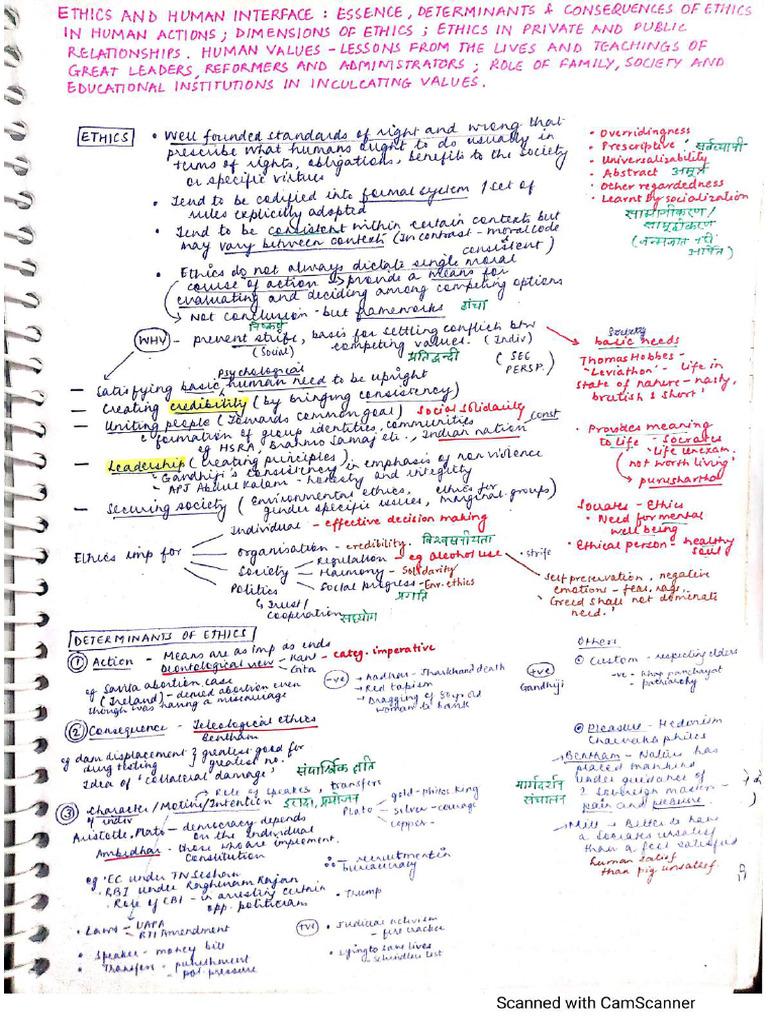 ETHICS AND HUMAN INTERFACE : ESSENCE, DETERMINANTS & CONSEQUENCES OF ETHICS
IN HUMAN ACTIONS ; DIMENSIONS OF ETHICS ; ETHICS IN PRIVATE AND PUBLIC
RELATIONSHIPS. HUMAN VALUES - LESSONS FROM THE LIVES AND TEACHINGS OF
GREAT LEADERS, REFORMERS AND ADMINISTRATORS ; ROLE OF FAMILY, SOCIETY AND
EDUCATIONAL INSTITUTIONS IN INCULCATING VALUES.
ETHICS
• Well founded standards of right and wrong that
prescribe what humans ought to do usually in
terms of rights, obligations, benefits to the society
or specific virtues
• Tend to be codified into formal system / set of
rules explicitly adopted
• Tend to be consistent within certain contexts but
may vary between contexts (In contrast - moral code
consistent)
• Ethics do not always dictate single moral
course of action → provide a means for
evaluating and deciding among competing options
↳ Not conclusion - but frameworks ढांचा
निष्कर्ष
• Overridingness
• Prescriptive सर्वव्यापी
• Universalizability
• Abstract अमूर्त
• Other regardedness
• Learnt by socialization
सामाजीकरण /
समूहीकरण
(जन्मजात नहीं
अर्जित)
WHY - prevent strife, basis for settling conflict btw
(Social) competing values. (Indiv)
प्रतिद्वन्दी (SEE
PERSP.)
Psychological
- Satisfying basic human need to be upright
- Creating credibility (by bringing consistency)
- Uniting people (Towards common goal) Social Solidarity
formation of group identities, communities
eg HSRA, Brahmo Samaj etc., Indian nation const
- Leadership (creating principles)
- Gandhiji's consistency in emphasis of non violence
- APJ Abdul Kalam - honesty and integrity
- Securing society (Environmental ethics, ethics for
gender specific issues, marginal. groups)
Society
basic needs
Thomas Hobbes -
'Leviathon' - life in
state of nature - nasty,
brutish & short'
• Provides meaning
to life - Socrates
'Life unexam.
not worth living'
↳ purushartha
Socrates - Ethics
• Need for mental
well being
• Ethical person - healthy
soul
Ethics imp for
Individual - effective decision making
Organisation - credibility विश्वसनीयता
Society
Regulation - eg alcohol use • strife
Harmony - Solidarity
Social progress - Env. ethics
प्रगति
Politics
↳ Trust /
cooperation
सहयोग
Self preservation, negative
emotions - fear, rage.
'Greed shall not dominate
need.'
DETERMINANTS OF ETHICS
① Action - Means are as imp as ends
Deontological view Kant - categ. imperative
Gita
eg Savita abortion case
(Ireland) - denied abortion even
though was having a miscarriage
-ve → Aadhar - Jharkhand death
→ Red tapism
→ Dragging of 80 yr old
woman to bank
+ve
Gandhiji
Others
① Custom - respecting elders
-ve - Khap panchayat
- patriarchy
② Consequence - Teleological ethics
Bentham
eg dam displacement } greatest good for
drug testing greatest no.
Idea of 'collateral damage' संपार्श्विक क्षति
② Pleasure - Hedonism
Charvaka philos
- Bentham - Nature has
placed mankind
under guidance of
2 sovereign masters -
pain and pleasure.
मार्गदर्शन
संचालन
- Mill → Better to have
a Socrates unsatisf
than a fool satisfied
human satisf
than pig unsatisf.
→ Role of speaker, transfers
③ Character / Motive / Intention इरादा, प्रयोजन
of indiv
Aristotle, Plato - democracy depends
on the individual
Ambedkar - those who are implement.
Constitution
Plato
gold - philos king
silver - courage
copper -
∴ → recruitment in
bureaucracy
eg. EC under TN Seshan
• RBI under Raghuram Rajan
• Role of CBI - in arresting certain
opp. politicians
• Trump
• Laws - UAPA
- RTI Amendment
• Speaker - money bill
• Transfers - punishment
- pol. pressure
+ve
• Judicial activism
- fire cracker
• Lying to save lives
- Schindler list
Scanned with CamScanner